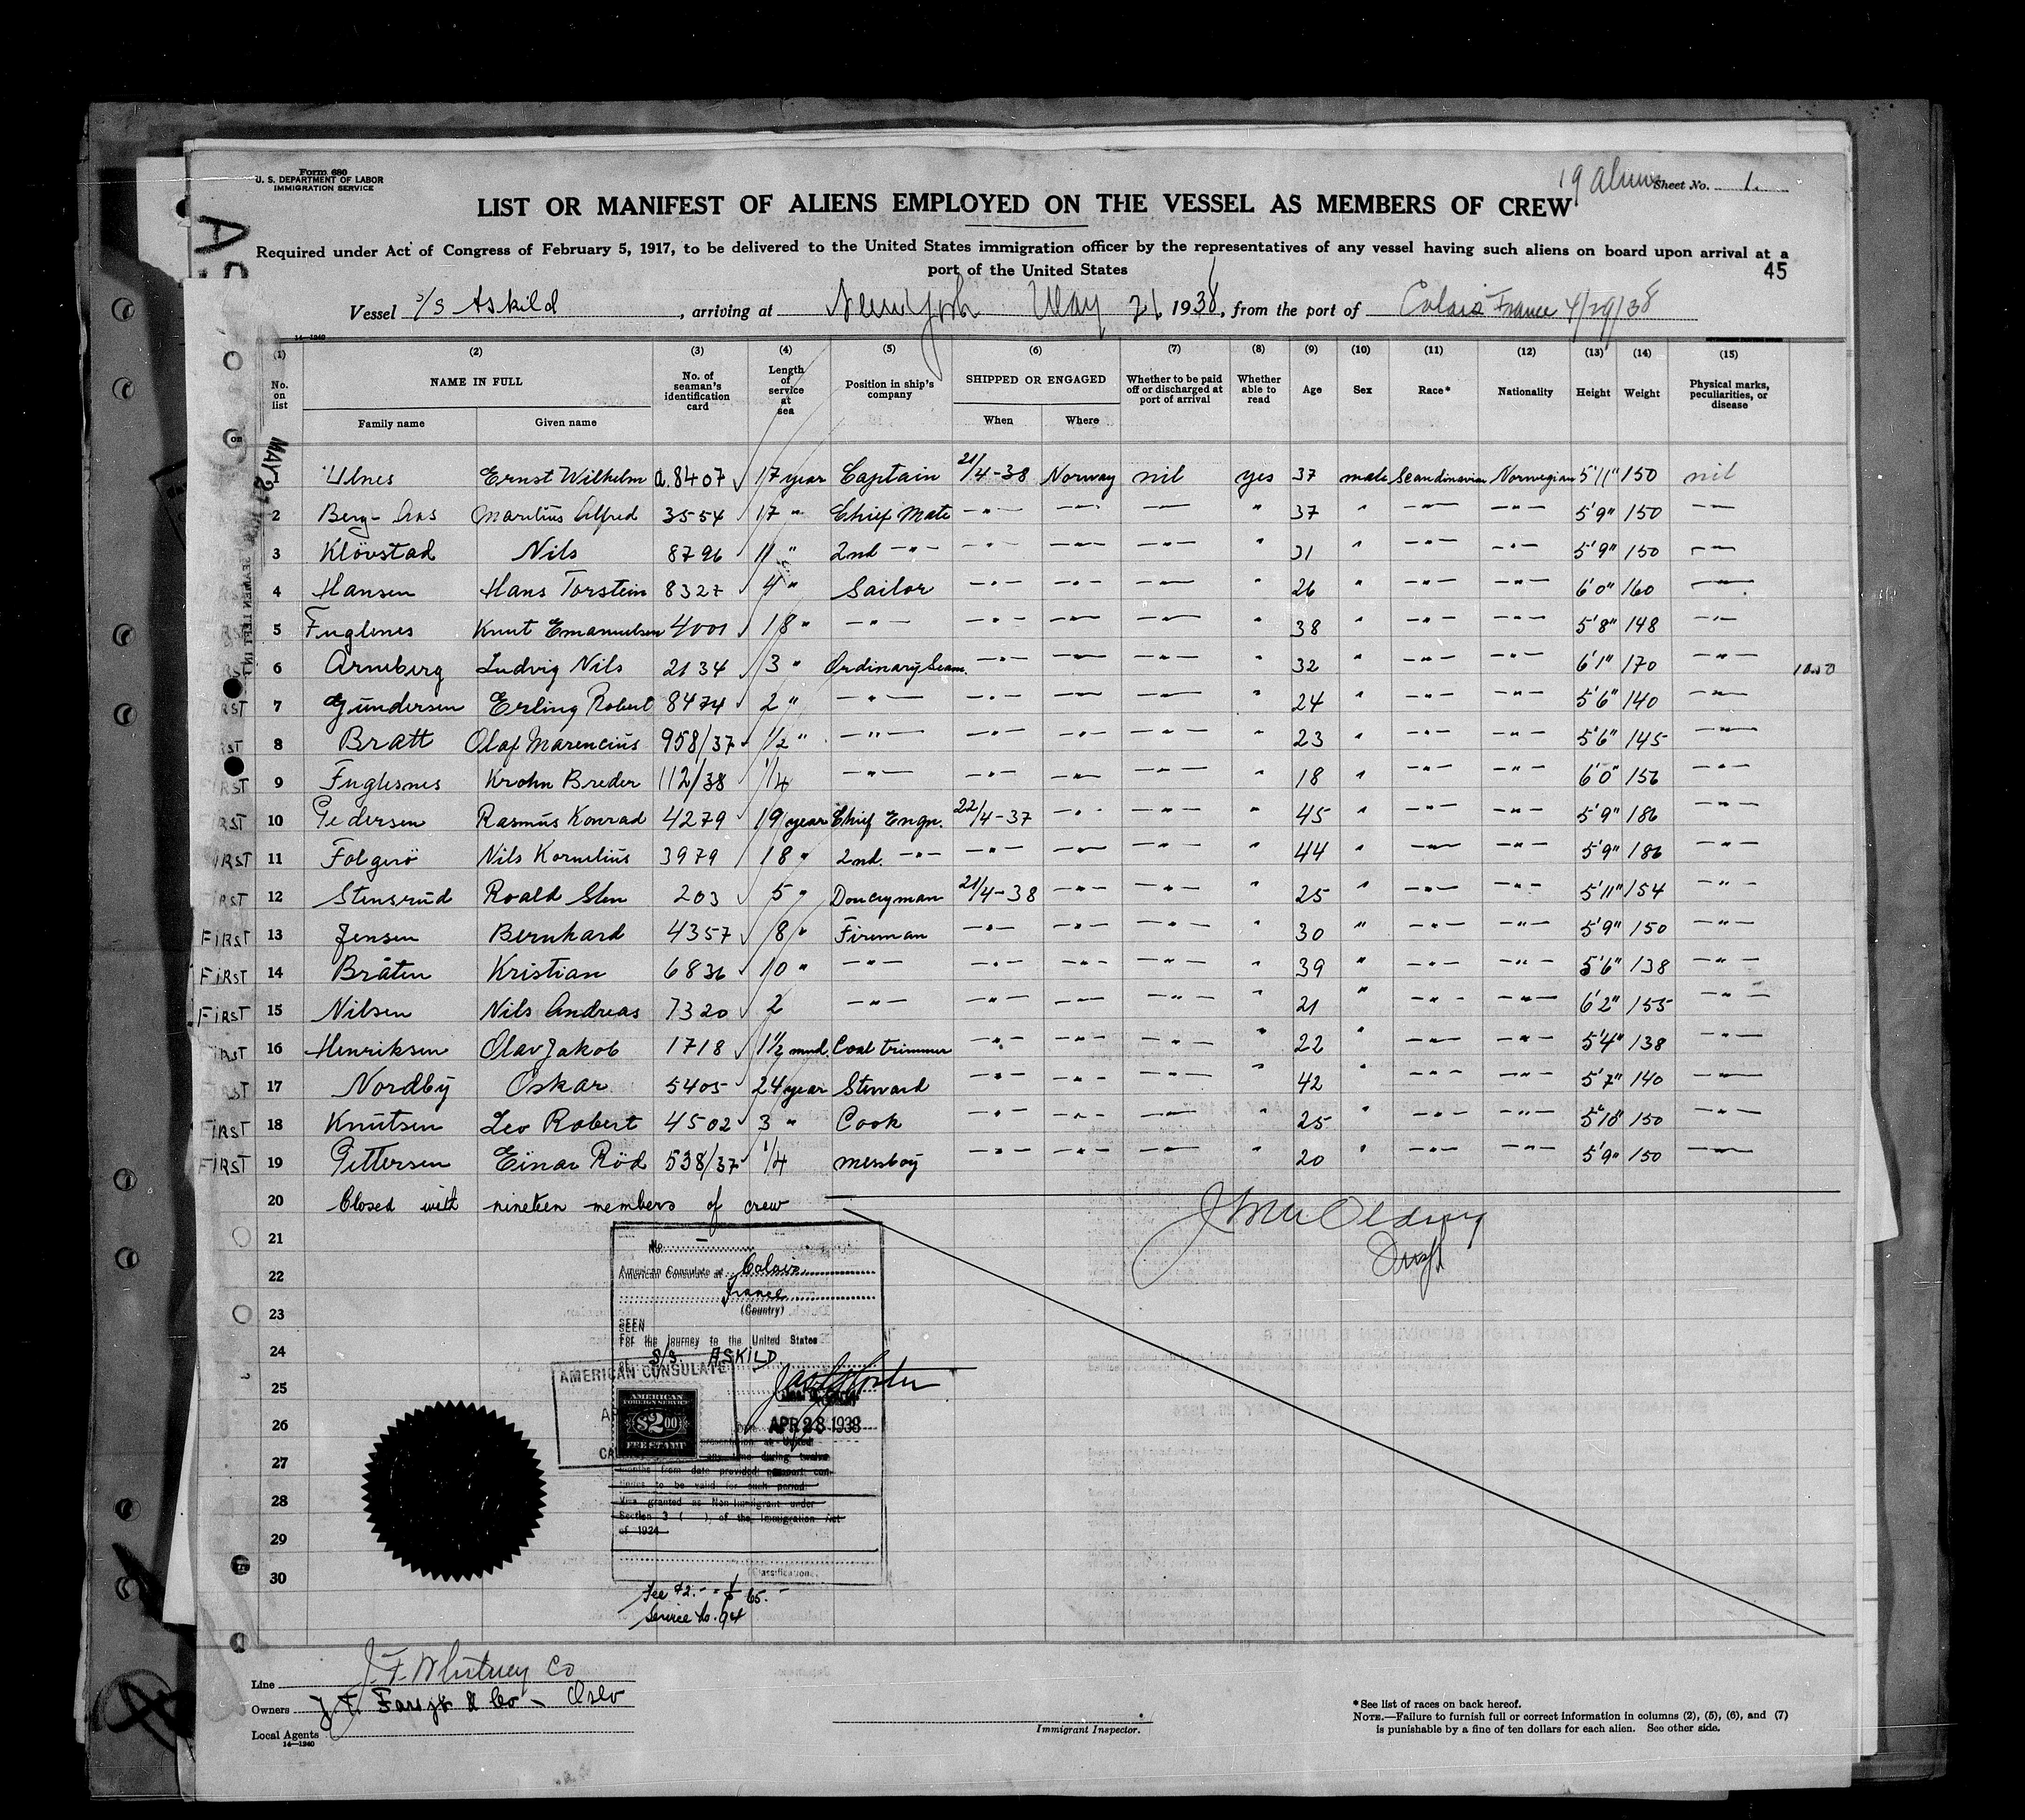 Form 680
U. S. DEPARTMENT OF LABOR
IMMIGRATION SERVICE
19 aliens Sheet No. 1.
LIST OR MANIFEST OF ALIENS EMPLOYED ON THE VESSEL AS MEMBERS OF CREW
Required under Act of Congress of February 5, 1917, to be delivered to the United States immigration officer by the representatives of any vessel having such aliens on board upon arrival at a
port of the United States
45
Vessel S/S Askild, arriving at New York May 21 1938, from the port of Calais France 4/29/38
14—1240
(1) (2) (3) (4) (5) (6) (7) (8) (9) (10) (11) (12) (13) (14) (15)
No. on list NAME IN FULL Family name Given name No. of seaman's identification card Length of service at sea Position in ship's company SHIPPED OR ENGAGED When Where Whether to be paid off or discharged at port of arrival Whether able to read Age Sex Race* Nationality Height Weight Physical marks, peculiarities, or disease
MAY 21
1 Ulnes Ernst Wilhelm a.8407 17 year Captain 21/4-38 Norway nil yes 37 male Scandinavian Norwegian 5'11" 150 nil
2 Berg-Aas Marelius Alfred 3554 17 " Chief Mate —"— —"— —"— " 37 " —"— —"— 5'9" 150 —"—
3 Klövstad Nils 8796 11 " 2nd —"— —"— —"— —"— " 31 " —"— —"— 5'9" 150 —"—
4 Hansen Hans Torstein 8327 4 " Sailor —"— —"— —"— " 26 " —"— —"— 6'0" 160 —"—
5 Fuglenes Knut Emanuelsen 4001 18 " —"— —"— —"— —"— " 38 " —"— —"— 5'8" 148 —"—
6 Arneberg Ludvig Nils 2134 3 " Ordinary Seam. —"— —"— —"— " 32 " —"— —"— 6'1" 170 —"—
RST 7 Gündersen Erling Robert 8474 2 " —"— —"— —"— —"— " 24 " —"— —"— 5'6" 140 —"—
RST 8 Bratt Olaf Marencius 958/37 1/2 " —"— —"— —"— —"— " 23 " —"— —"— 5'6" 145 —"—
FIRST 9 Fuglesnes Krohn Breder 112/38 1/4 —"— —"— —"— —"— " 18 " —"— —"— 6'0" 156 —"—
RST 10 Pedersen Rasmus Konrad 4279 19 year Chief Engn. 22/4-37 —"— —"— " 45 " —"— —"— 5'9" 186 —"—
IRST 11 Folgerö Nils Kornelius 3979 18 " 2nd. —"— —"— —"— —"— " 44 " —"— —"— 5'9" 186 —"—
RST 12 Stensrud Roald Sten 203 5 " Donceyman 21/4-38 —"— —"— " 25 " —"— —"— 5'11" 154 —"—
FIRST 13 Jensen Bernhard 4357 8 " Fireman —"— —"— —"— " 30 " —"— —"— 5'9" 150 —"—
FIRST 14 Bråten Kristian 6836 10 " —"— —"— —"— —"— " 39 " —"— —"— 5'6" 138 —"—
FIRST 15 Nilsen Nils Andreas 7320 2 —"— —"— —"— —"— " 21 " —"— —"— 6'2" 155 —"—
FIRST 16 Henriksen Olav Jakob 1718 1½ mnd. Coal trimmer —"— —"— —"— " 22 " —"— —"— 5'4" 138 —"—
RST 17 Nordby Oskar 5405 24 year Steward —"— —"— —"— " 42 " —"— —"— 5'7" 140 —"—
FIRST 18 Knutsen Leo Robert 4502 3 " Cook —"— —"— —"— " 25 " —"— —"— 5'10" 150 —"—
FIRST 19 Pettersen Einar Röd 538/37 1/4 messboy —"— —"— —"— " 20 " —"— —"— 5'9" 150 —"—
20 Closed with nineteen members of crew
21
22
23
24
25
26
27
28
29
30
No. —
American Consulate at Calais
France
(Country)
SEEN
For the journey to the United States
of S/S ASKILD
AMERICAN CONSULATE
AMERICAN
FOREIGN SERVICE
$2.00
FEE STAMP
APR 28 1938
any time during twelve
months from date provided passport con-
tinues to be valid for such period.
Visa granted as Non-Immigrant under
Section 3 ( ), of the Immigration Act
of 1924
(Classification)
Fee $2.- = 65.-
Service No. 94
Line J. F. Whitney Co
Owners Oslo
Local Agents
14—1240
Immigrant Inspector.
*See list of races on back hereof.
NOTE.—Failure to furnish full or correct information in columns (2), (5), (6), and (7)
is punishable by a fine of ten dollars for each alien. See other side.